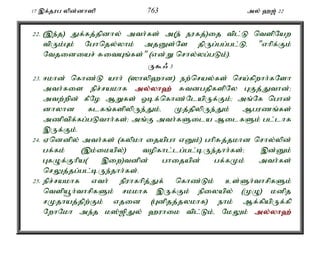 17 இக்தரப லின்னாஸி 763 அல் ஹஜ் 22
22. (இந்த) துக்கத்தினால் அவர்கள் அ(ந் நரகத்)தை விட்டு வெளியேற
விரும்பும் போதெல்லாம் அதனுள்ளே திருப்பப்பட்டு, "எரிக்கும்
வேதனையைச் சுவையுங்கள்" (என்று சொல்லப்படும்).
ருகூஃ 3
23. ஈமான் கொண்டு யார் (ஸாலிஹான) நற்செயல்கள் செய்கிறார்களோ
அவர்களை நிச்சயமாக அல்லாஹ் சுவனபதிகளிலே புகுத்துவான்;
அவற்றின் கீழே ஆறுகள் ஓடிக்கொண்டேயிருக்கும்; அங்கே பொன்
னாலான கடகங்களிலிருந்தும், முத்திலிருந்தும் ஆபரணங்கள்
அணிவிக்கப்படுவார்கள்; அங்கு அவர்களுடைய ஆடைகளும் பட்டாக
இருக்கும்.
24. ஏனெனில் அவர்கள் (கலிமா தையிபா எனும்) பரிசுத்தமான சொல்லின்
பக்கம் (இம்மையில்) வழிகாட்டப்பட்டிருந்தார்கள்; இன்னும்
புகழுக்குரிய( இறை)வனின் பாதையின் பக்கமும் அவர்கள்
செலுத்தப்பட்டிருந்தார்கள்.
25. நிச்சயமாக எவர் நிராகரித்துக் கொண்டும் உள்ளூர்வாசிகளும்
வெளியூர்வாசிகளும் சமமாக இருக்கும் நிலையில் (முழு) மனித
சமுதாயத்திற்கும் எதனை (புனிதத்தலமாக) நாம் ஆக்கியிருக்கி
றோமோ அந்த மஸ்ஜிதுல் ஹராமை விட்டும், மேலும் அல்லாஹ்